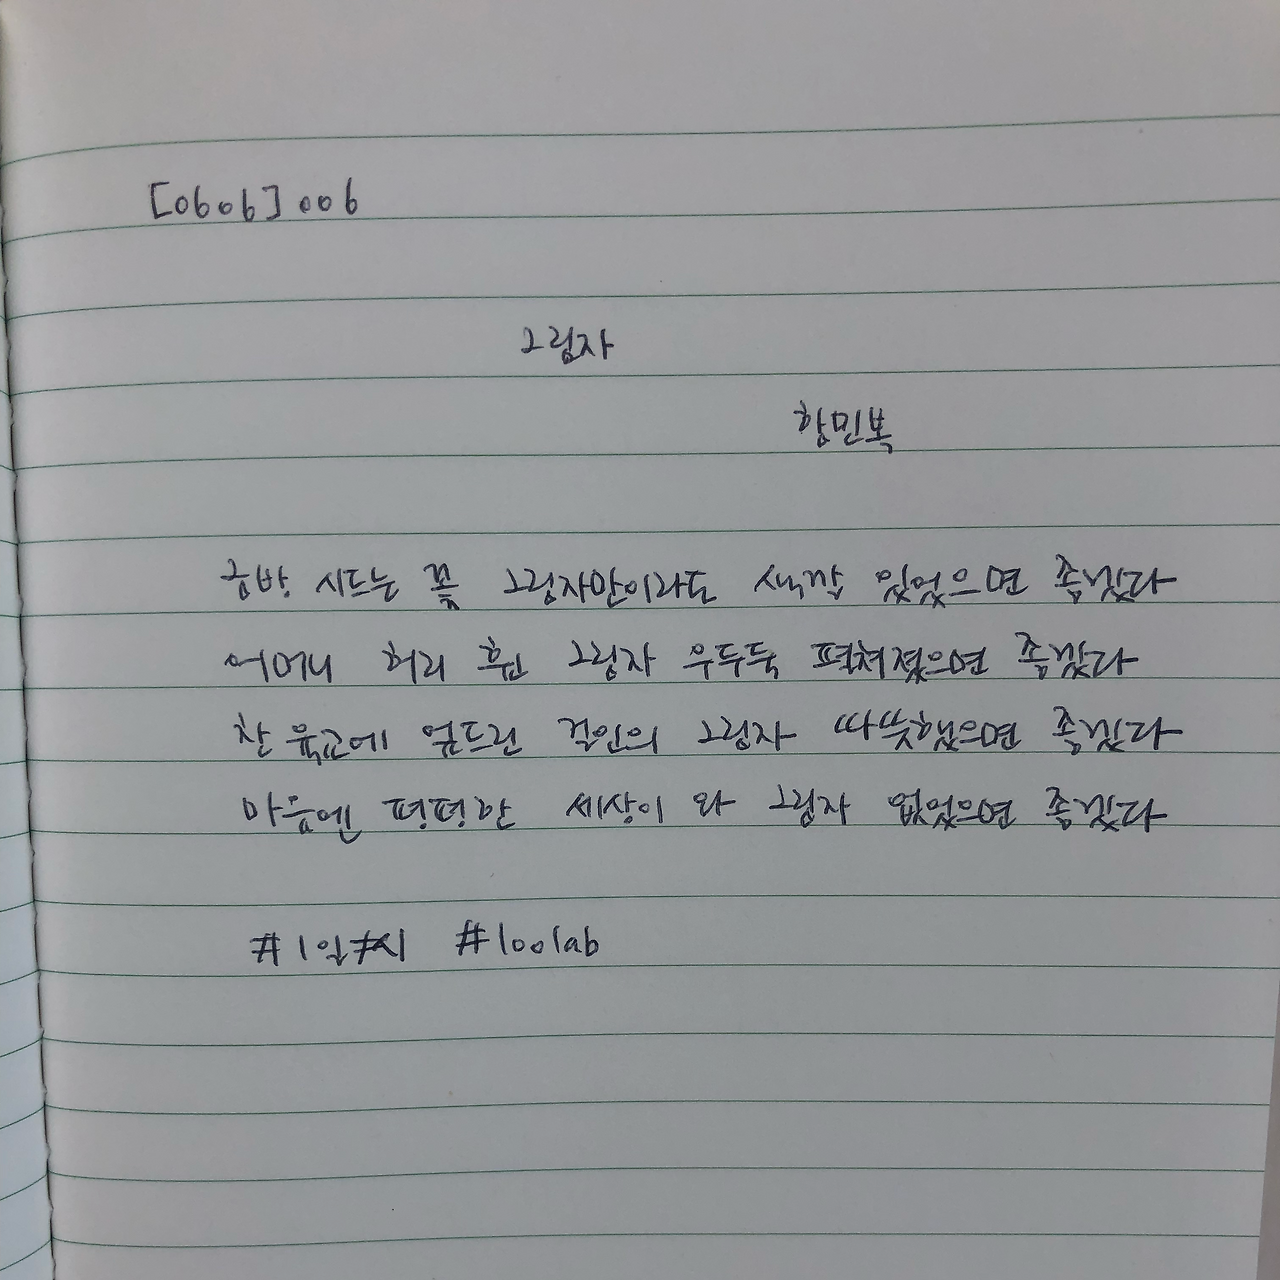 [0606] 006
그림자
함민복
금방 시드는 꽃 그림자만이라도 색깔 있었으면 좋겠다
어머니 허리 휜 그림자 우두둑 펴쳐졌으면 좋겠다
찬 육교에 엎드린 걸인의 그림자 따뜻했으면 좋겠다
마음엔 평평한 세상이 와 그림자 없었으면 좋겠다
#1일#시 #100lab